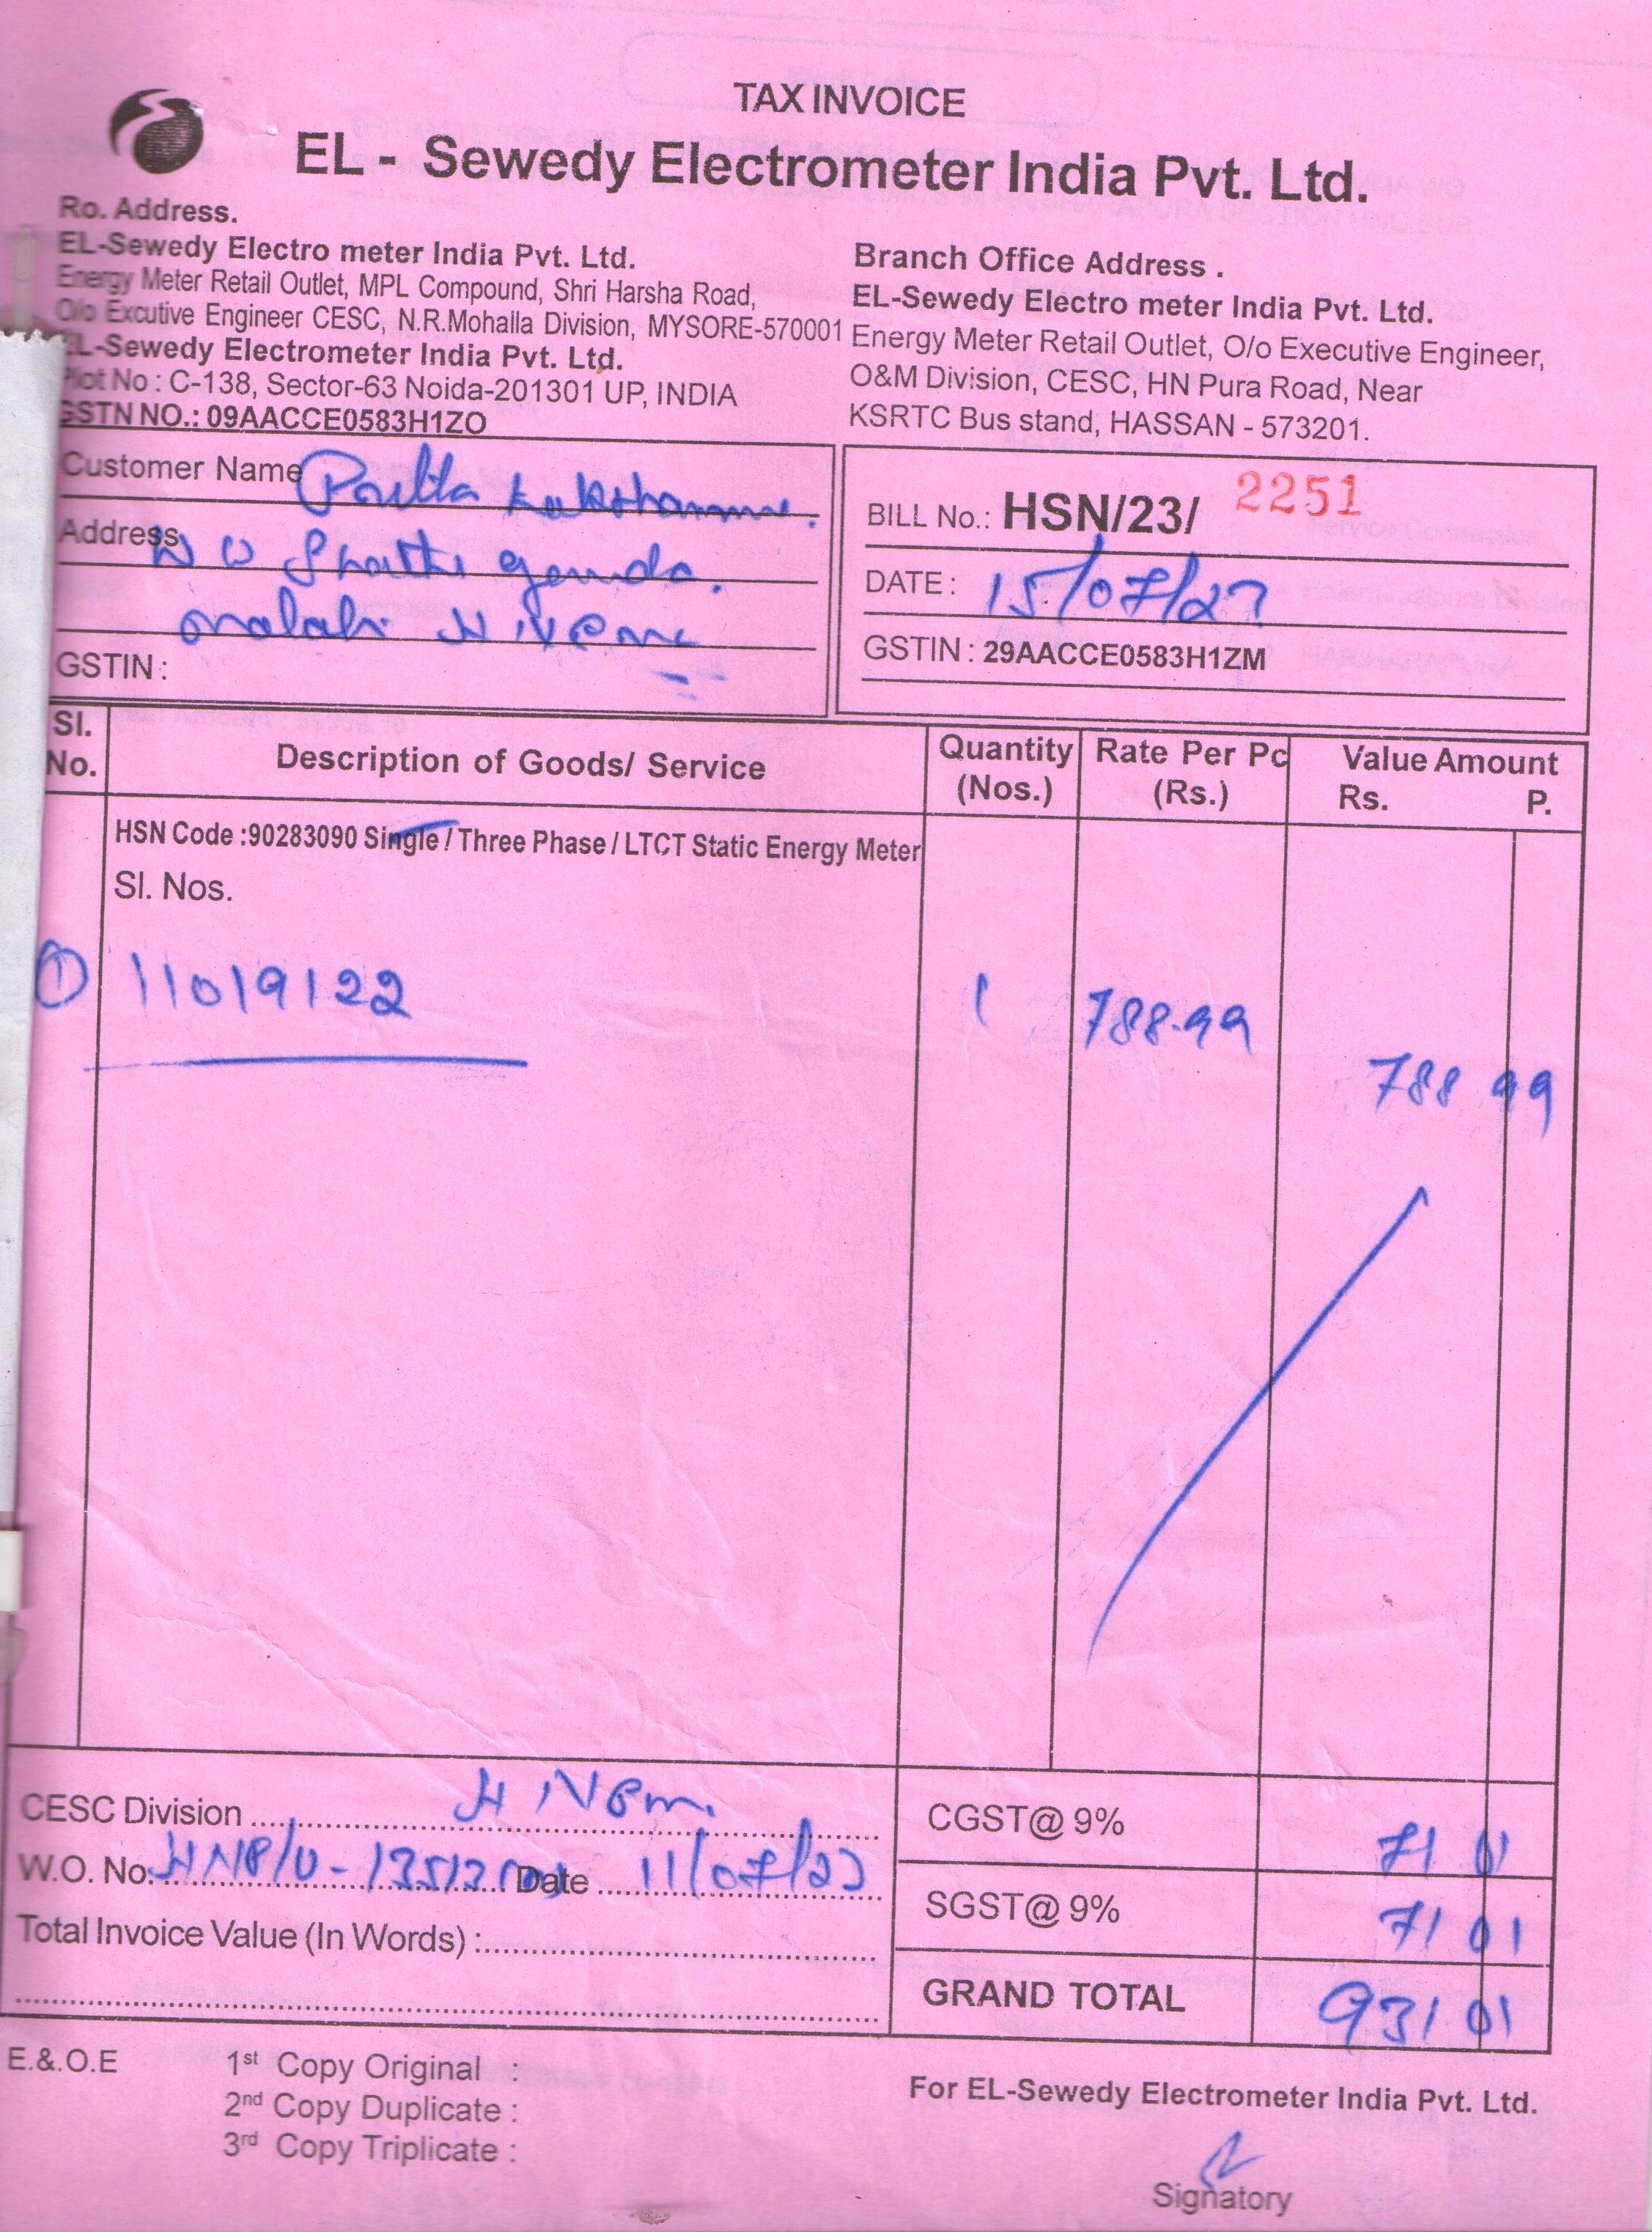 TAX INVOICE
EL - Sewedy Electrometer India Pvt. Ltd.
Ro. Address.
EL-Sewedy Electro meter India Pvt. Ltd.
Energy Meter Retail Outlet, MPL Compound, Shri Harsha Road,
O/o Excutive Engineer CESC, N.R.Mohalla Division, MYSORE-570001
EL-Sewedy Electrometer India Pvt. Ltd.
Plot No : C-138, Sector-63 Noida-201301 UP, INDIA
GSTN NO.: 09AACCE0583H1ZO
Branch Office Address .
EL-Sewedy Electro meter India Pvt. Ltd.
Energy Meter Retail Outlet, O/o Executive Engineer,
O&M Division, CESC, HN Pura Road, Near
KSRTC Bus stand, HASSAN - 573201.
Customer Name
Address
GSTIN :
BILL No.: HSN/23/ 2251
DATE : 15/07/23
GSTIN : 29AACCE0583H1ZM
Sl. No. Description of Goods/ Service Quantity (Nos.) Rate Per Pc (Rs.) Value Amount Rs. P.
HSN Code :90283090 Single / Three Phase / LTCT Static Energy Meter
Sl. Nos.
① 11019122 1 788.99
788 99
CESC Division
W.O. No. Date 11/07/23
Total Invoice Value (In Words) :
CGST@ 9% 71 01
SGST@ 9% 71 01
GRAND TOTAL 931 01
E.&.O.E
1st Copy Original :
2nd Copy Duplicate :
3rd Copy Triplicate :
For EL-Sewedy Electrometer India Pvt. Ltd.
Signatory